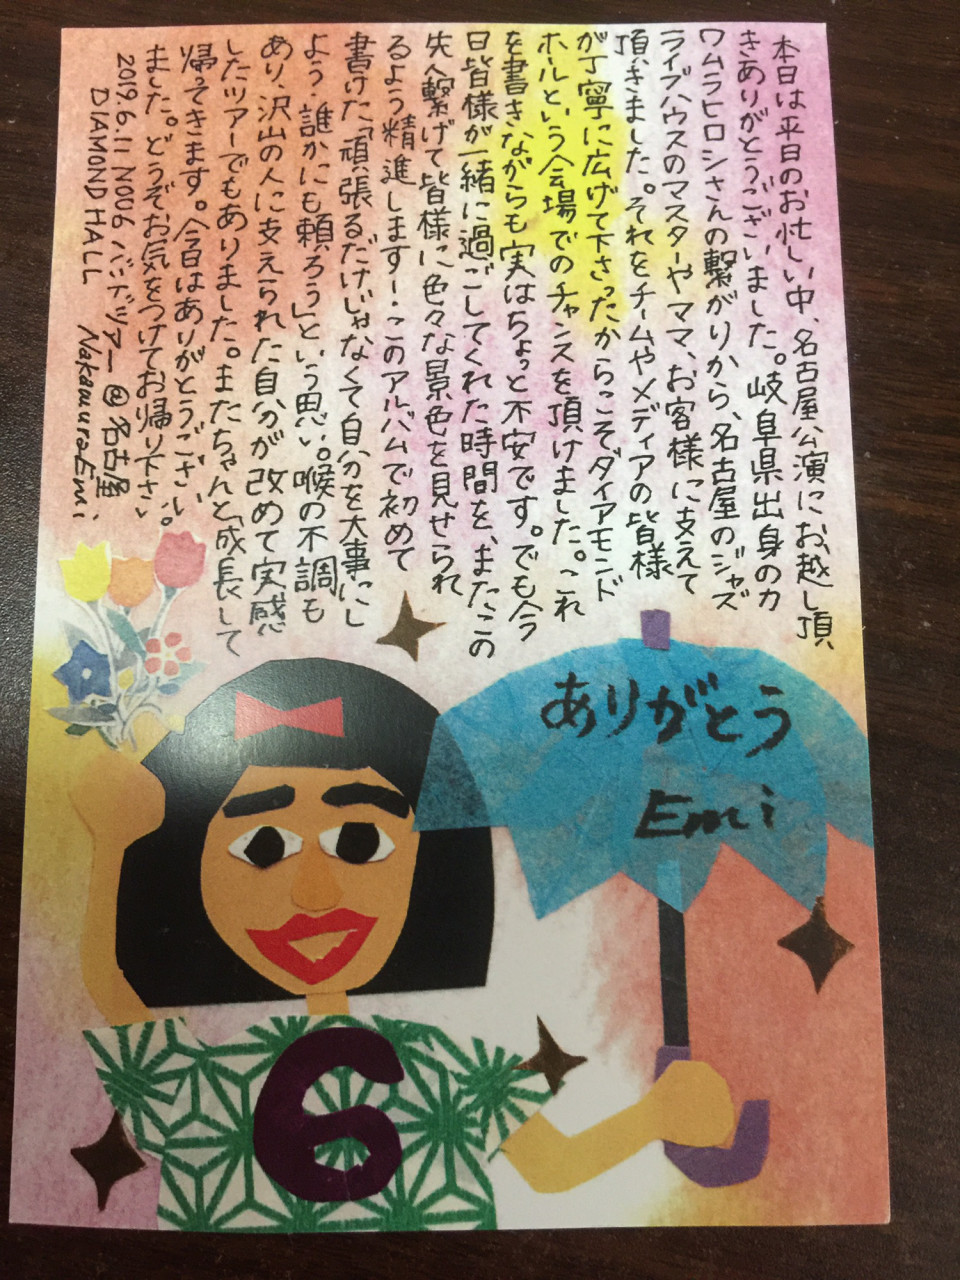 本日は平日のお忙しい中、名古屋公演にお越し頂
きありがとうございました。岐阜県出身のカ
ワムラヒロシさんの繋がりから、名古屋のジャズ
ライブハウスのマスターやママ、お客様に支えて
頂きました。それをチームやメディアの皆様
が丁寧に広げて下さったからこそダイアモンド
ホールという会場でのチャンスを頂けました。これ
を書きながらも実はちょっと不安です。でも今
日皆様が一緒に過ごしてくれた時間を、またこの
先へ繋げて皆様に色々な景色を見せられ
るよう精進します!このアルバムで初めて
書けた「頑張るだけじゃなくて自分を大事にし
よう・誰かにも頼ろう」という思い。喉の不調も
あり、沢山の人に支えられた自分が改めて実感
したツアーでもありました。またちゃんと成長して
帰ってきます。今日はありがとうござい
ました。どうぞお気をつけてお帰り下さい。
2019.6.11 NOO6 バンドツアー @名古屋
DIAMOND HALL
Nakamura Emi
ありがとう
Emi
6